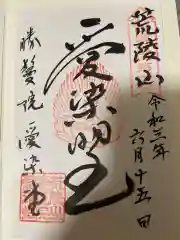 荒陵山
令和三年
六月十五日
愛染明王
勝鬘院
愛染堂